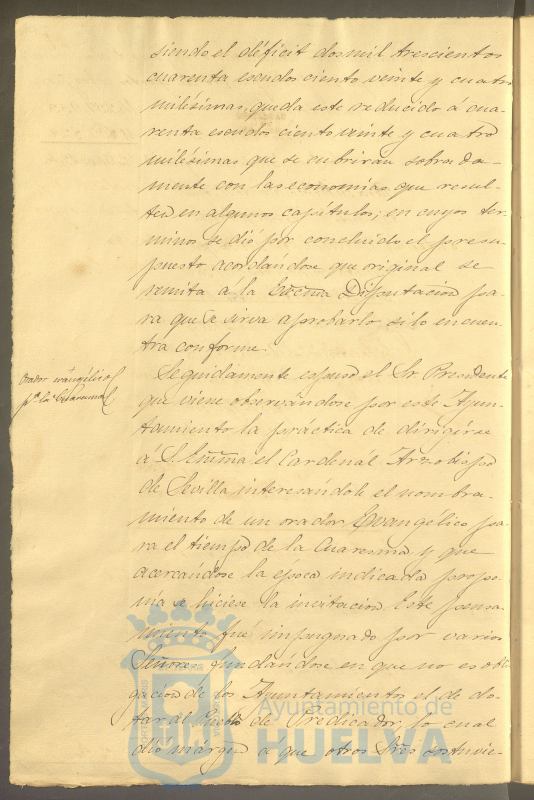 siendo el déficit dos mil trescientos
cuarenta escudos ciento veinte y cuatro
milésimas, queda este reducido á cua-
renta escudos ciento veinte y cuatro
milésimas que se cubriran sobrada-
mente con las economías que resul-
ten en algunos capítulos; en cuyos ter-
minos se dió por concluido el presu-
puesto acordándose que original se
remita á la Excma Diputacion pa-
ra que se sirva aprobarlo si lo encuen-
tra conforme.
Orador evangélico
pa la Cuaresma
Seguidamente espuso el Sr Presidente
que viene observándose por este Ayun-
tamiento la práctica de dirigirse
á S. Emma el Cardenal Arzobispo
de Sevilla interesándole el nombra-
miento de un orador Evangélico pa-
ra el tiempo de la Cuaresma y que
acercándose la época indicada propo-
nia se hiciese la incitacion. Este pensa-
miento fué impugnado por varios
Señores fundándose en que no es obli-
gacion de los Ayuntamientos el de do-
tar al Pueblo de Predicador, lo cual
dió márgen á que otros Sres sostuvie-
Ayuntamiento de
HUELVA